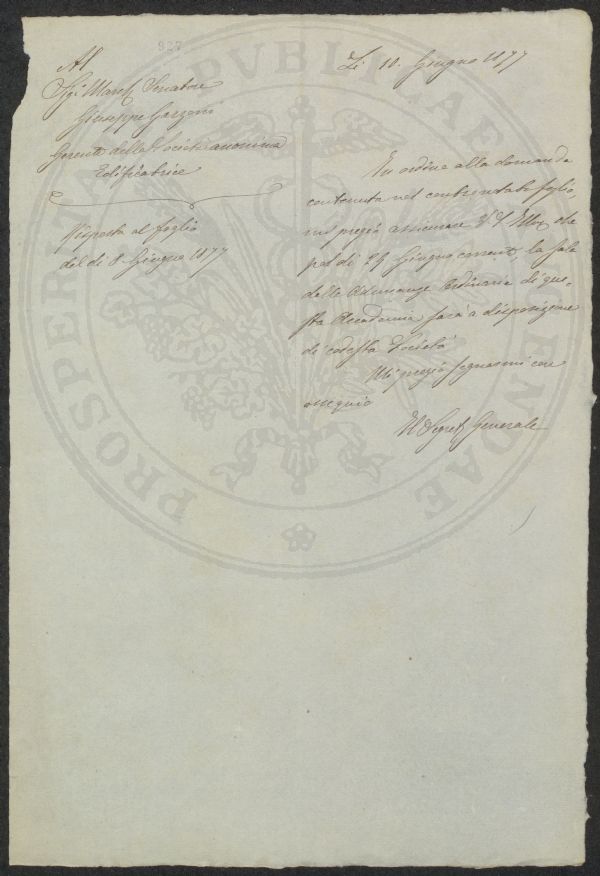 927
Al
Sigr March. Senatore
Giuseppe Garzoni
Gerente della Società anonima
Edificatrice
Risposta al foglio
del dì 8 Giugno 1877
Li 10. Giugno 1877
In ordine alla domanda
contenuta nel controndato foglio
mi pregio assicurare V. S. Illma che
pel dì 24 Giugno corrente, la sala
delle Adunanze Ordinarie di que-
sta Accademia sarà a disposizione
di codesta Società
Mi pregio segnarmi con
ossequio
Il Segreto Generale
PROSPERITATI PVBLICAE AVGENDAE